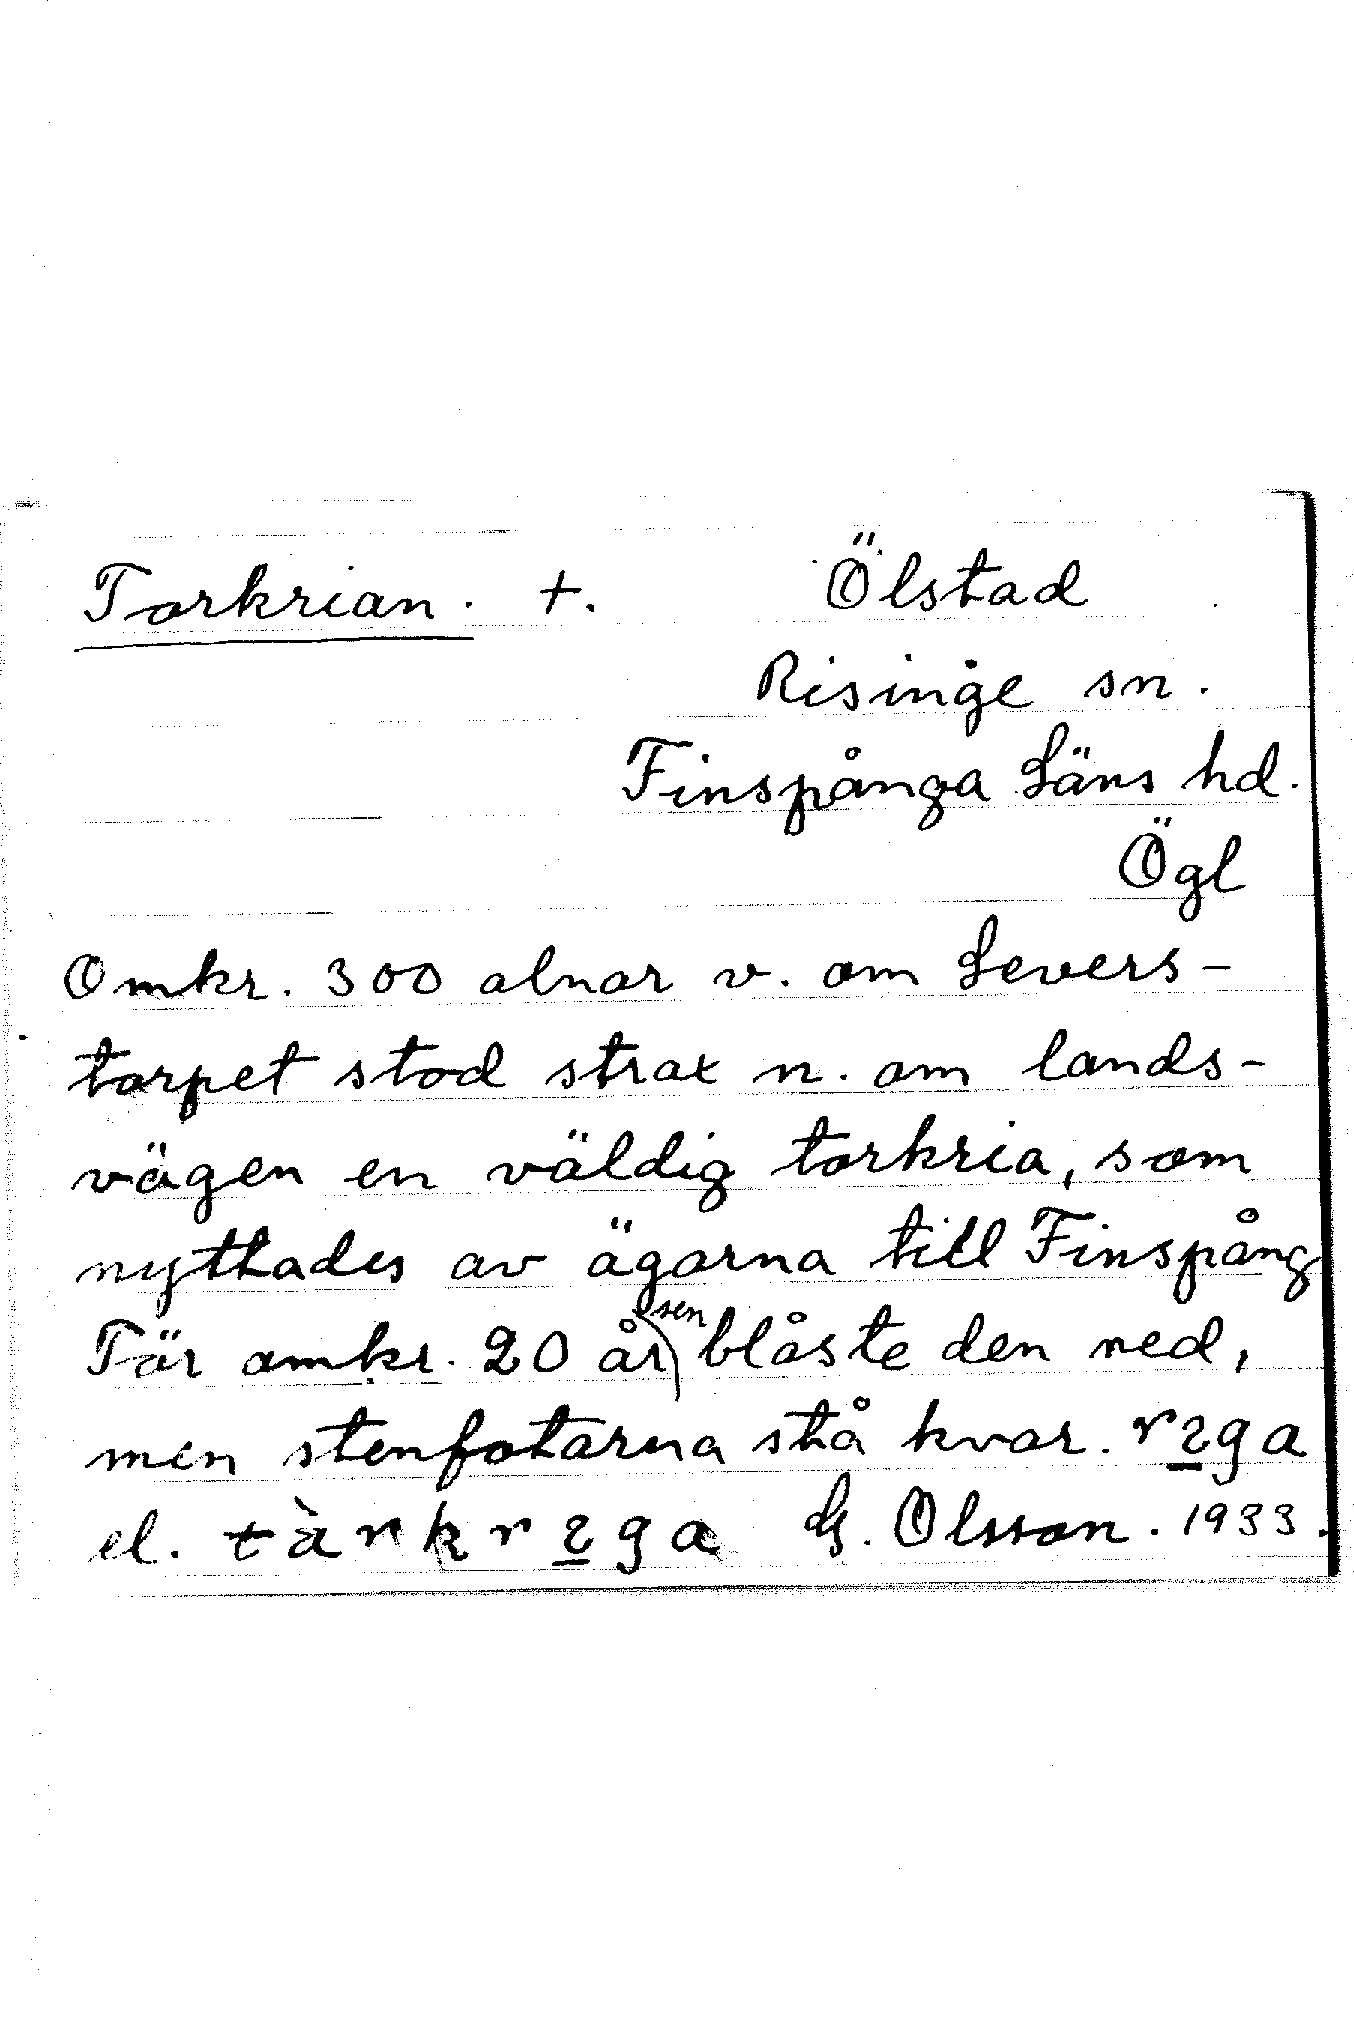 Torkrian. +. Ölstad
Risinge sn.
Finspånga Läns hd.
Ögl
Omkr. 300 alnar v. om Levers-
torpet stod strax n. om lands-
vägen en väldig torkria, som
nyttades av ägarna till Finspång
För omkr. 20 år sen blåste den ned,
men stenfotarna stå kvar.
el. G. Olsson. 1933.